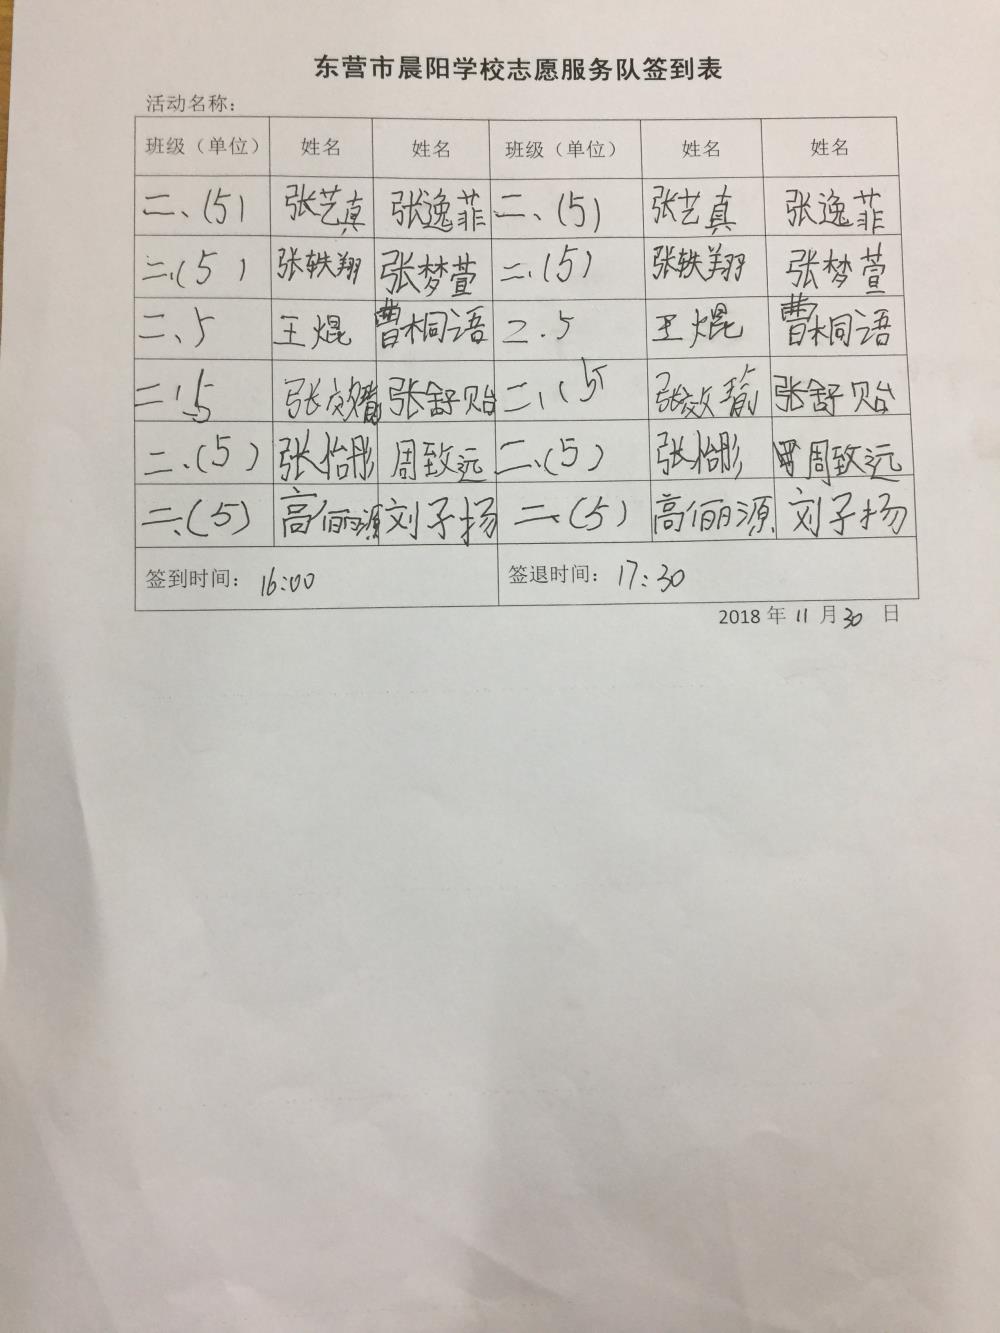 东营市晨阳学校志愿服务队签到表
活动名称：
班级（单位） 姓名 姓名 班级（单位） 姓名 姓名
二、(5) 张艺真 张逸菲 二、(5) 张艺真 张逸菲
二、(5) 张轶翔 张梦萱 二、(5) 张轶翔 张梦萱
二、5 王焜 曹桐语 二.5 王焜 曹桐语
二、5 张舒贻 二、(5 张舒贻
二、(5) 张怡彤 周致远 二、(5) 张怡彤 周致远
二、(5) 高俪源 刘子扬 二、(5) 高俪源 刘子扬
签到时间：16:00 签退时间：17:30
2018 年 11 月 30 日